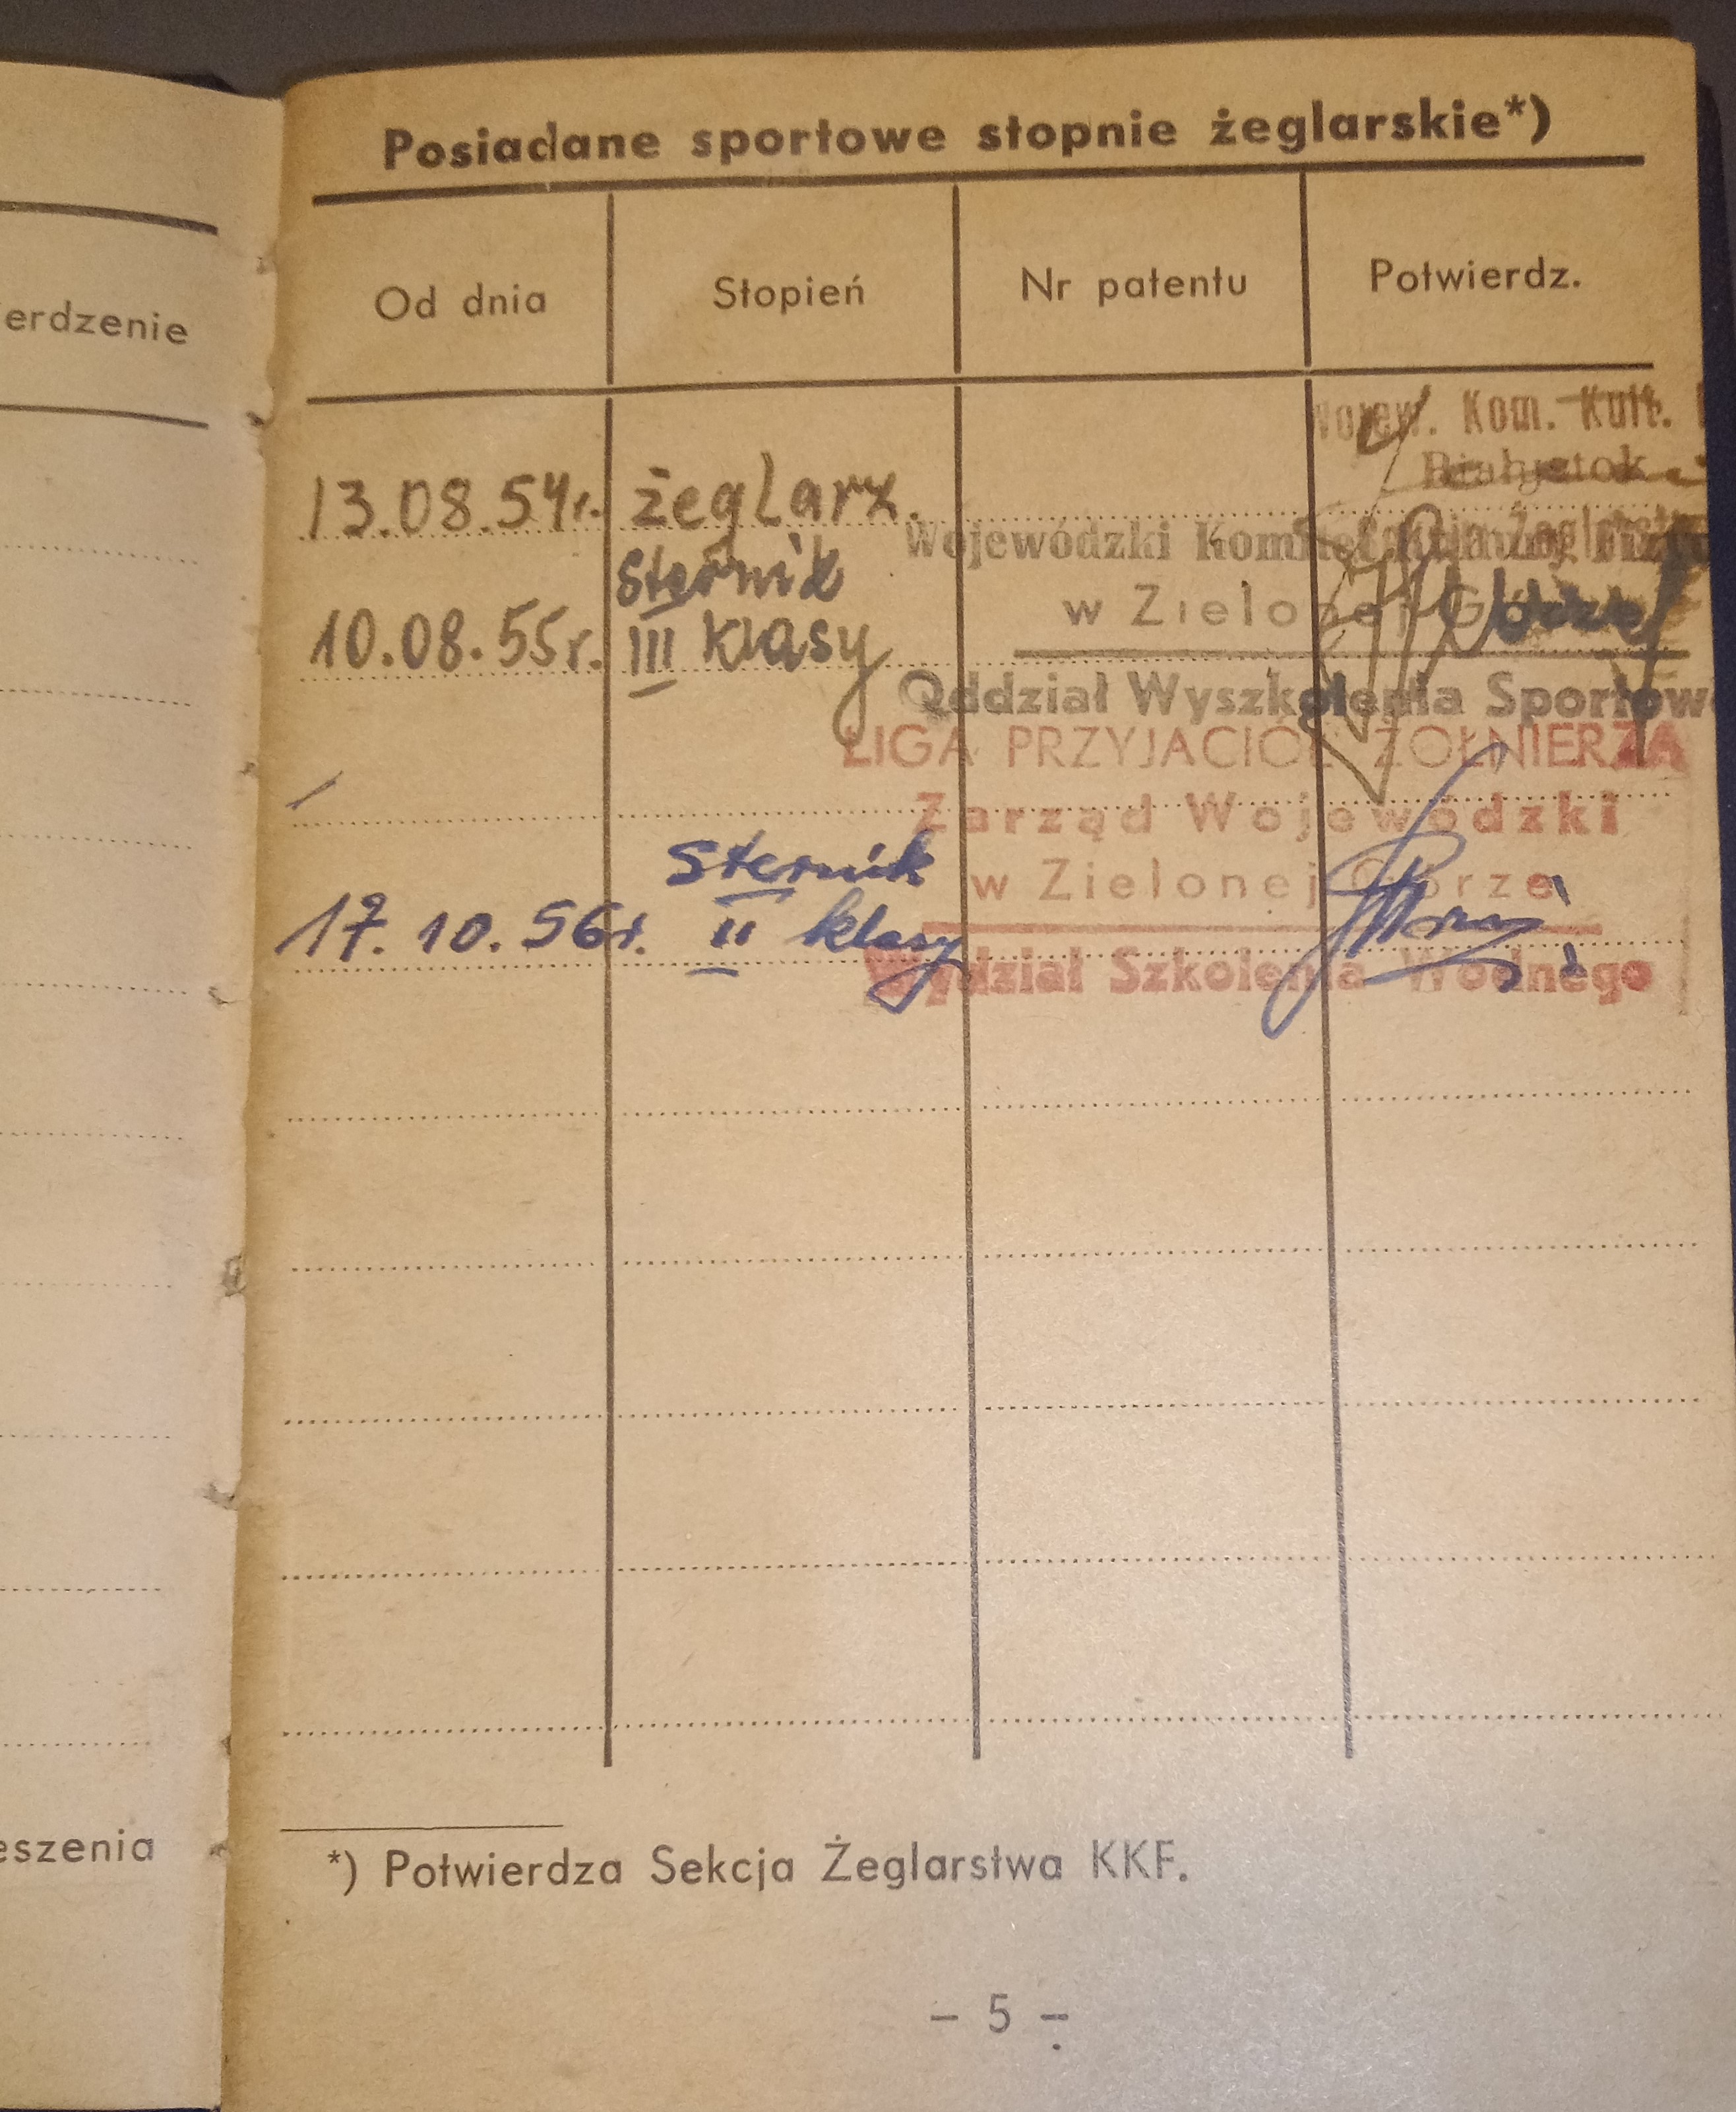 erdzenie
eszenia
Posiadane sportowe stopnie żeglarskie*)
Od dnia Stopień Nr patentu Potwierdz.
Kom. Kult.
Białystok
13.08.54r. żeglarz.
Wojewódzki
sternik
w Zielonej Górze
10.08.55r. III klasy
Oddział Wyszkolenia Sportow
LIGA PRZYJACIÓŁ ŻOŁNIERZA
Zarząd Wojewódzki
sternik
w Zielonej Górze
17.10.56r. II klasy
Wydział Szkolenia Wodnego
*) Potwierdza Sekcja Żeglarstwa KKF.
– 5 –